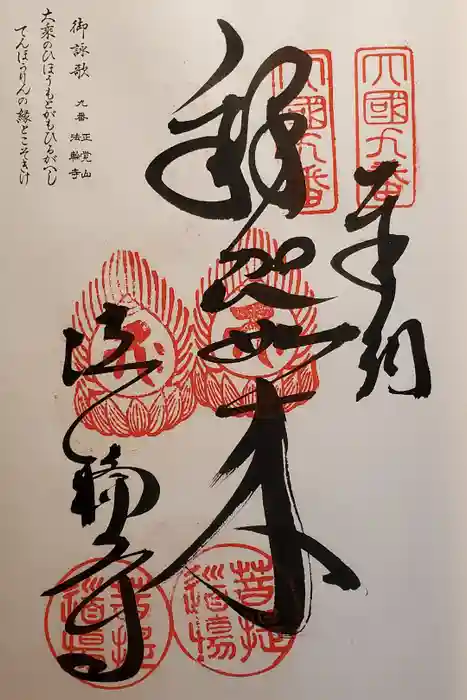 四國九番
奉納
四國九番
釋迦如来
菩提
道場
法輪寺
菩提
道場
御詠歌
九番 正覚山
法輪寺
大乘のひほうもとがもひるがへし
てんぽうりんの縁とこそきけ